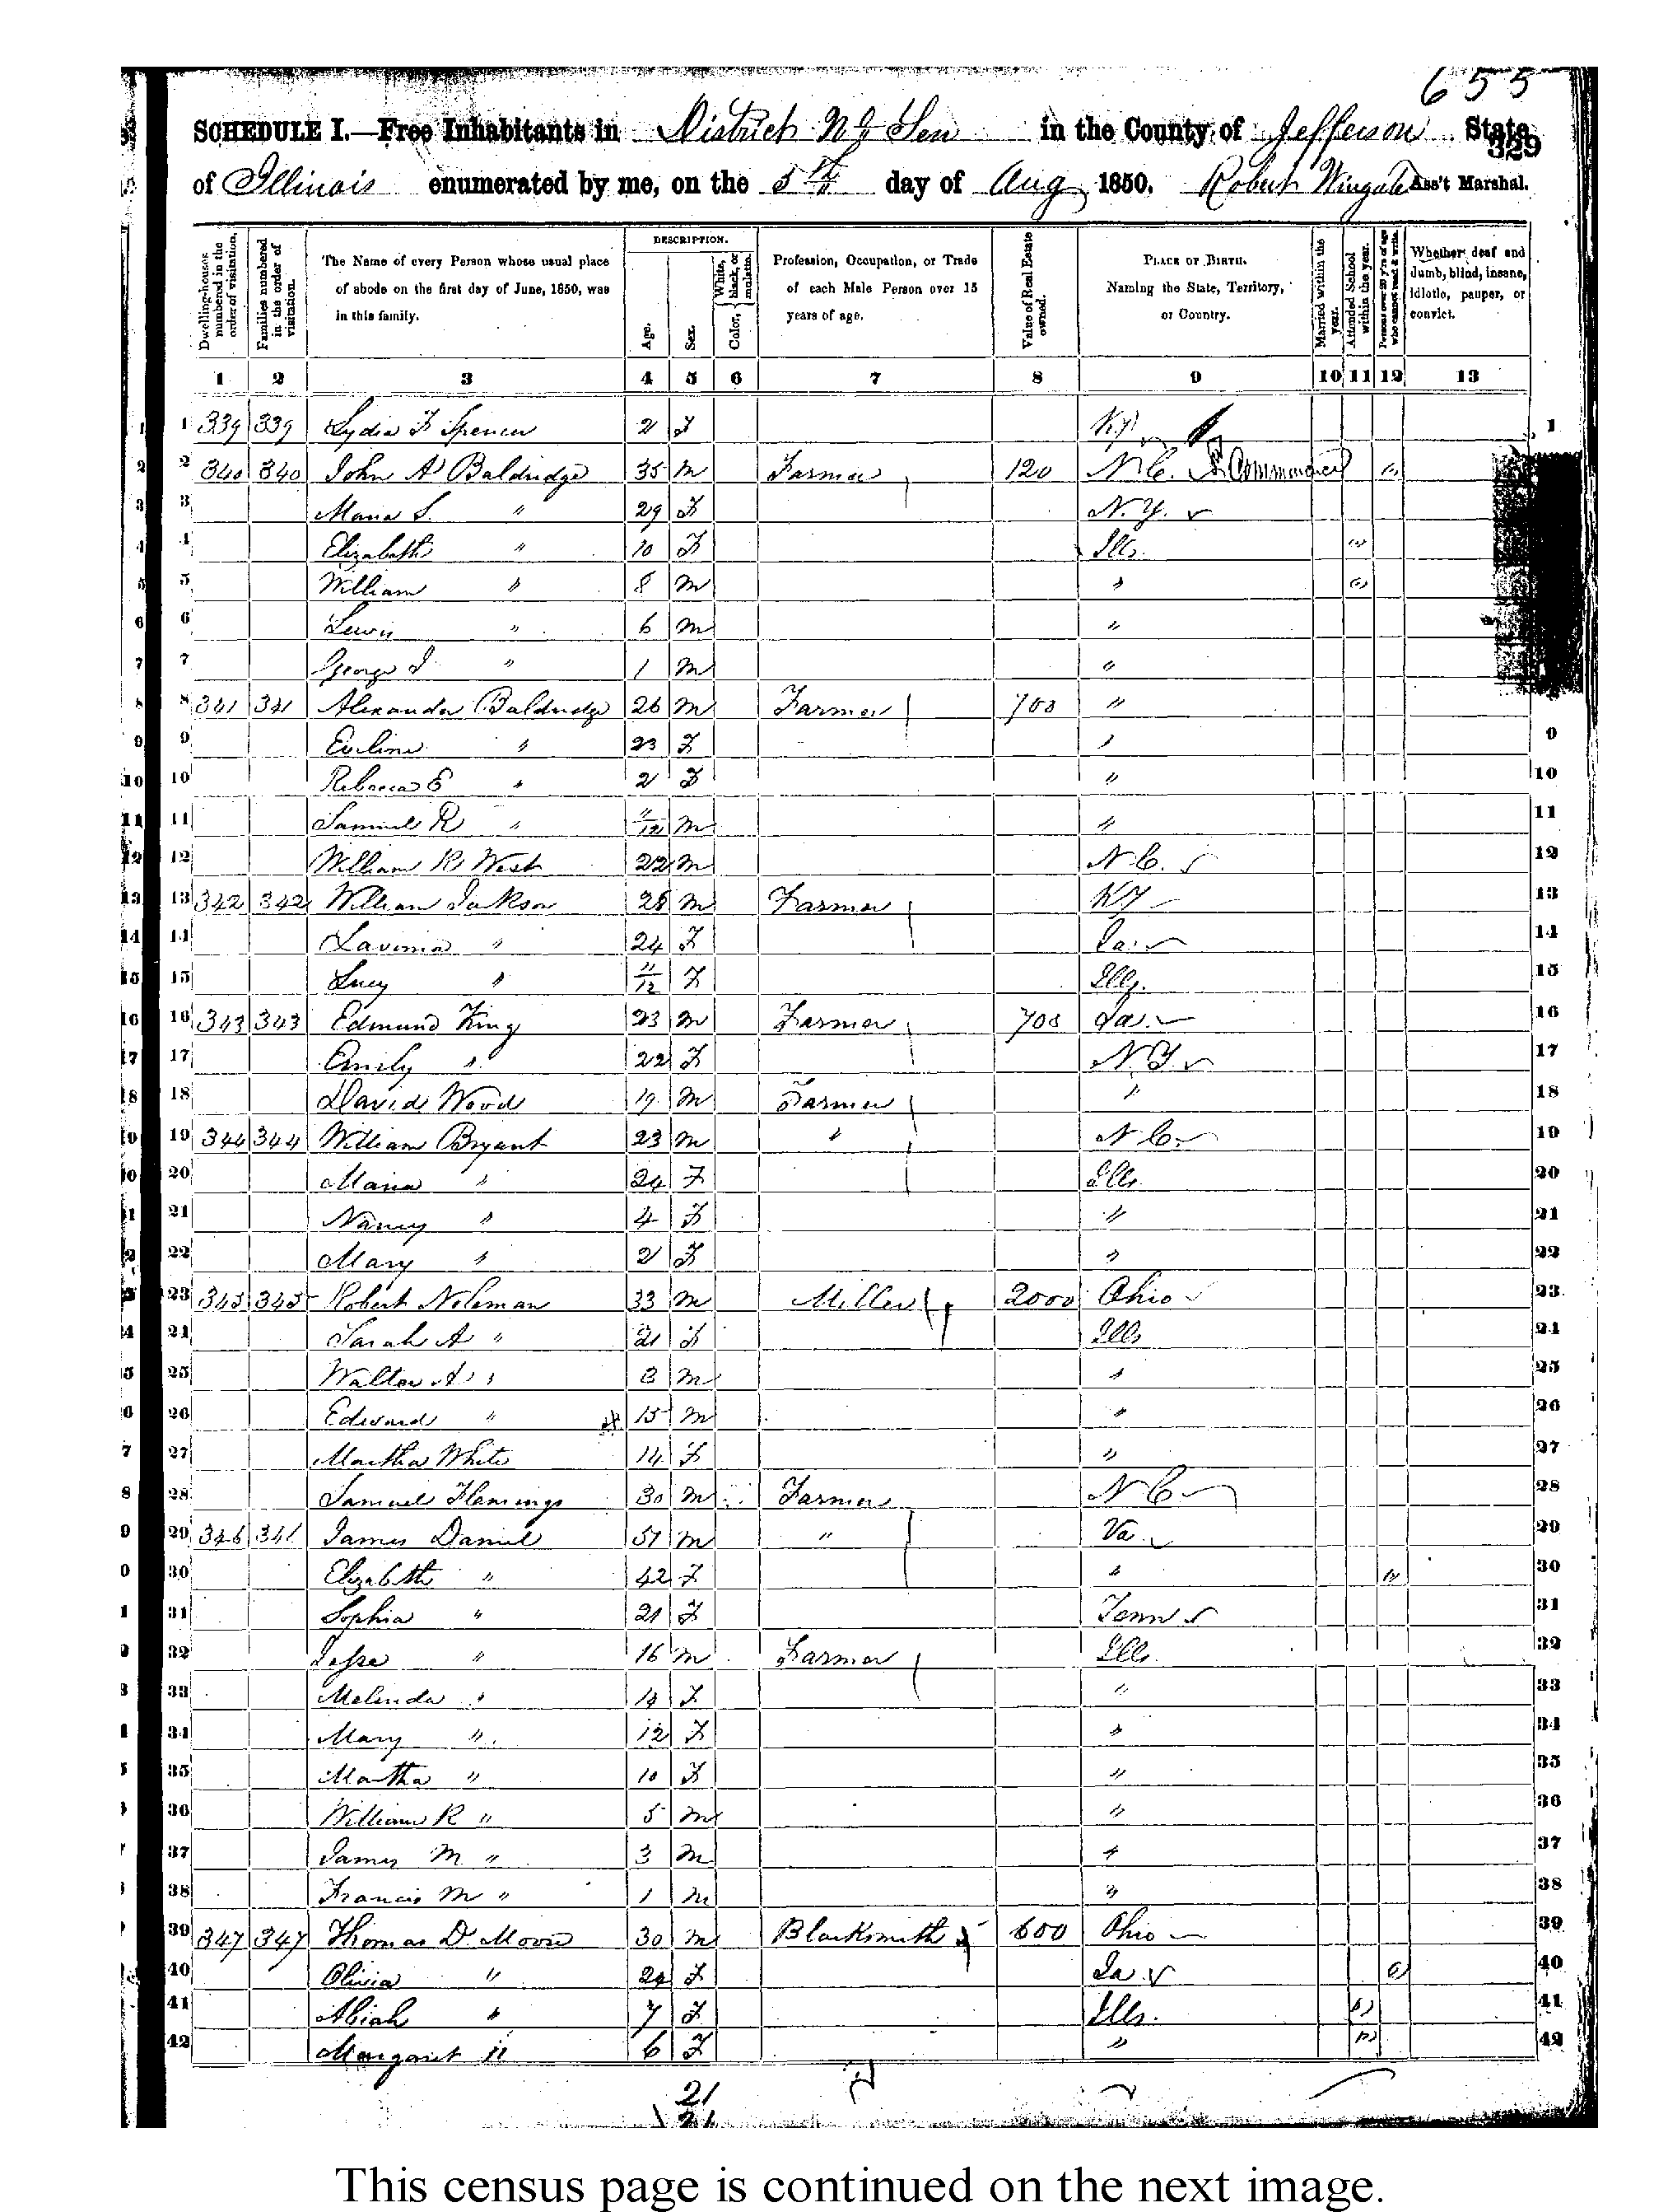 655
SCHEDULE I.—Free Inhabitants in District No Ten in the County of Jefferson State
329
of Illinois enumerated by me, on the 5th day of Aug 1850. Robert Wingate Ass't Marshal.
Dwelling-houses numbered in the order of visitation.
Families numbered in the order of visitation.
The Name of every Person whose usual place of abode on the first day of June, 1850, was in this family.
DESCRIPTION.
Age.
Sex.
Color, { White, black, or mulatto.
Profession, Occupation, or Trade of each Male Person over 15 years of age.
Value of Real Estate owned.
PLACE OF BIRTH. Naming the State, Territory, or Country.
Married within the year.
Attended School within the year.
Persons over 20 y'rs of age who cannot read & write.
Whether deaf and dumb, blind, insane, idiotic, pauper, or convict.
1 2 3 4 5 6 7 8 9 10 11 12 13
1 339 339 Lydia F Spencer 2 F Ky 1
2 340 340 John A Baldridge 35 M Farmer 120 N C.
3 Maria S. " 29 F N.Y.
4 Elizabeth " 10 F Ills.
5 William " 8 M "
6 Lewis " 6 M "
7 George " 1 M "
8 341 341 Alexander Baldridge 26 M Farmer 700 "
9 Eveline " 23 F " 9
10 Rebecca E " 2 F " 10
11 Samuel R " 11/12 M " 11
12 William R West 22 M N C. 12
13 342 342 William Jackson 28 M Farmer KY 13
14 Lavinia " 24 F Ia. 14
15 Lucy " 11/12 F Ills. 15
16 343 343 Edmund King 23 M Farmer 700 Ia. 16
17 Emily " 22 F N.Y. 17
18 David Wood 19 M Farmer " 18
19 344 344 William Bryant 23 M " N C. 19
20 Maria " 24 F Ills. 20
21 Nancy " 4 F " 21
22 Mary " 2 F " 22
23 345 345 Robert Noleman 33 M Miller 2000 Ohio 23
24 Sarah A " 21 F Ills 24
25 Walter A " 3 M " 25
26 Edward " 15 M " 26
27 Martha White 14 F " 27
28 Samuel Flemings 30 M Farmer N C 28
29 346 346 James Daniel 51 M " Va. 29
30 Elizabeth " 42 F " 30
31 Sophia " 21 F Tenn 31
32 Jesse " 16 M Farmer Ills. 32
33 Melinda " 14 F " 33
34 Mary " 12 F " 34
35 Martha " 10 F " 35
36 William R " 5 M " 36
37 James M " 3 M " 37
38 Francis M " 1 M " 38
39 347 347 Thomas D. Moore 30 M Blacksmith 600 Ohio 39
40 Olivia " 24 F Ia 40
41 Abiah " 7 F Ills. 41
42 Margaret " 6 F " 42
21
21
This census page is continued on the next image.